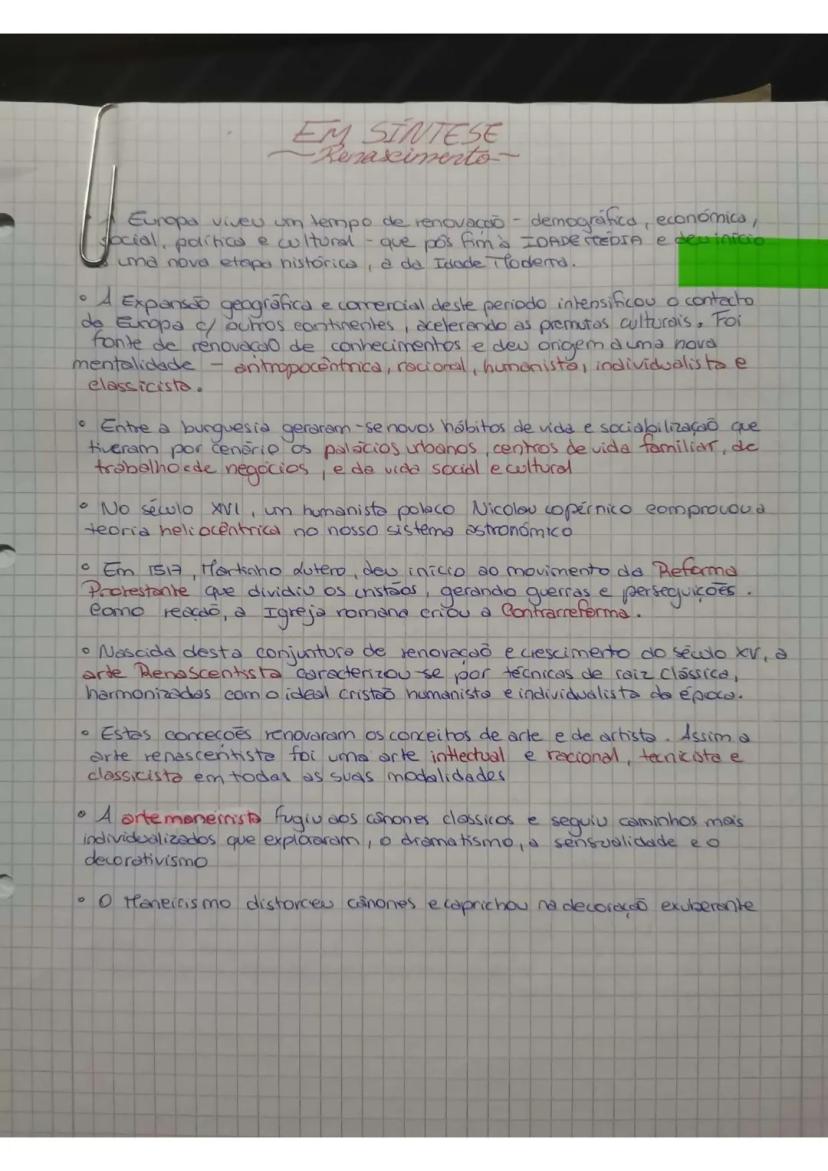 EM SÍNTESE
Renascimento
A Europa viveu um tempo de renovação - demográfica, económica,
social, política e cultural - que pôs fim à IDADE MÉDIA e deu início
uma nova etapa histórica, a da Idade Moderna.
• A Expansão geográfica e comercial deste periodo intensificou o contacto
da Europa c/ outros continentes, acelerando as premutas culturais. Foi
fonte de renovação de conhecimentos e deu origem a uma nova
mentalidade - antropocêntrica, racional, humanista, individualista e
classicista.
• Entre a burguesia geraram-se novos hábitos de vida e sociabilização que
tiveram por cenário os palácios urbanos, centros de vida familiar, de
trabalho e de negócios, e da vida social e cultural
• No século XVI, um humanista polaco Nicolau copérnico comprovou a
teoria heliocêntrica no nosso sistema astronómico
• Em 1517, Martinho Lutero, deu início ao movimento da Reforma
Protestante que dividiu os cristãos, gerando guerras e perseguições.
Como reação, a Igreja romana criou a Contrarreforma.
• Nascida desta conjuntura de renovação e crescimento do século XV, a
arte Renascentista caracterizou-se por técnicas de raiz clássica,
harmonizadas com o ideal cristão humanista e individualista da época.
• Estas conceções renovaram os conceitos de arte e de artista. Assim a
arte renascentista foi uma arte intlectual e racional, tecnicista e
classicista em todas as suas modalidades
• A arte maneirista fugiu aos cânones classicos e seguiu caminhos mais
individualizados que exploraram, o dramatismo, a sensualidade e o
decorativismo
• O Maneirismo distorceu cânones e caprichou na decoração exuberante